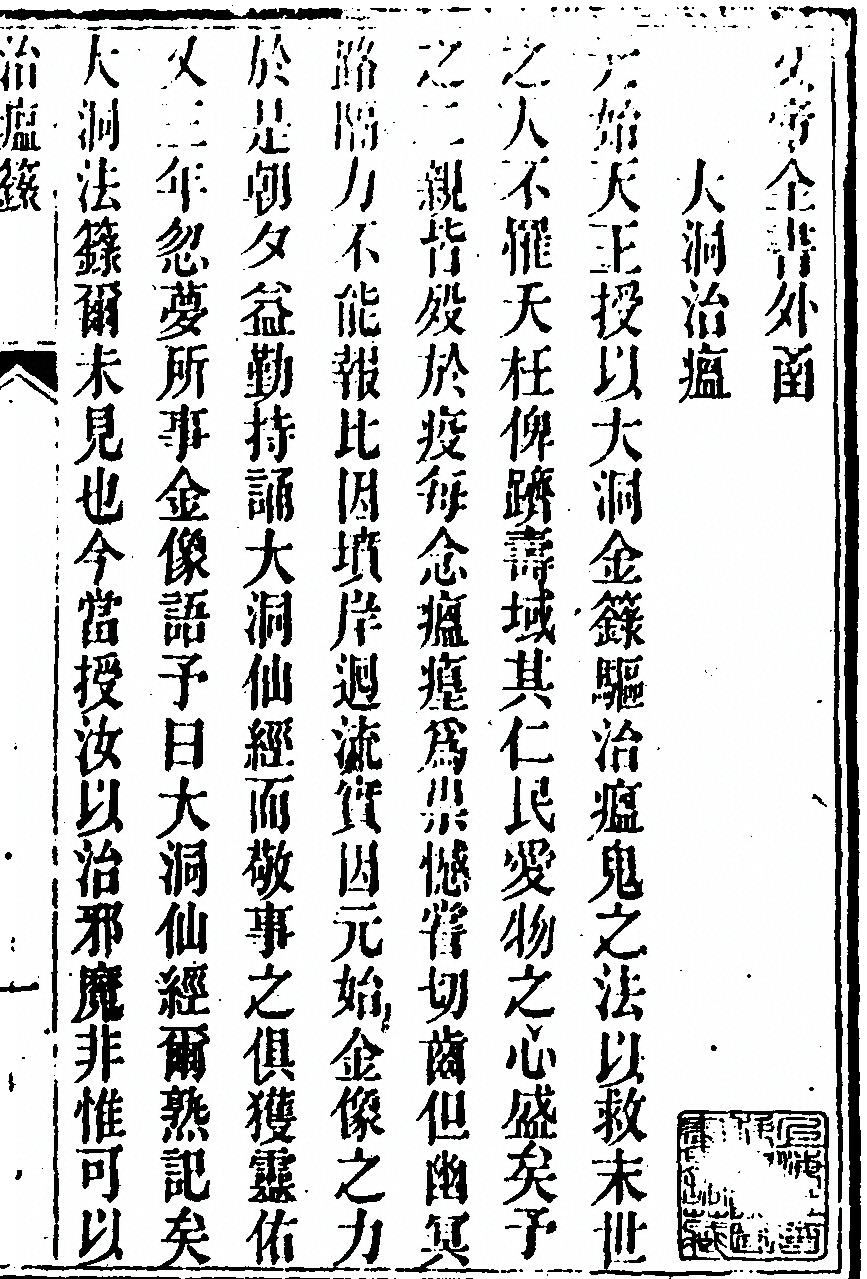 文帝全書外函
大洞治瘟
元始天王授以大洞金籙驅治瘟鬼之法以救末世
之人不罹夭枉俾躋壽域其仁民愛物之心盛矣予
之二親皆歿於疫每念瘟𤸁為祟憾嘗切齒但幽冥
路隔力不能報比因墳岸迴流實因元始金像之力
於是朝夕益勤持誦大洞仙經而敬事之俱獲靈佑
又三年忽夢所事金像語予曰大洞仙經爾熟記矣
大洞法籙爾未見也今當授汝以治邪魔非惟可以
治瘟籙